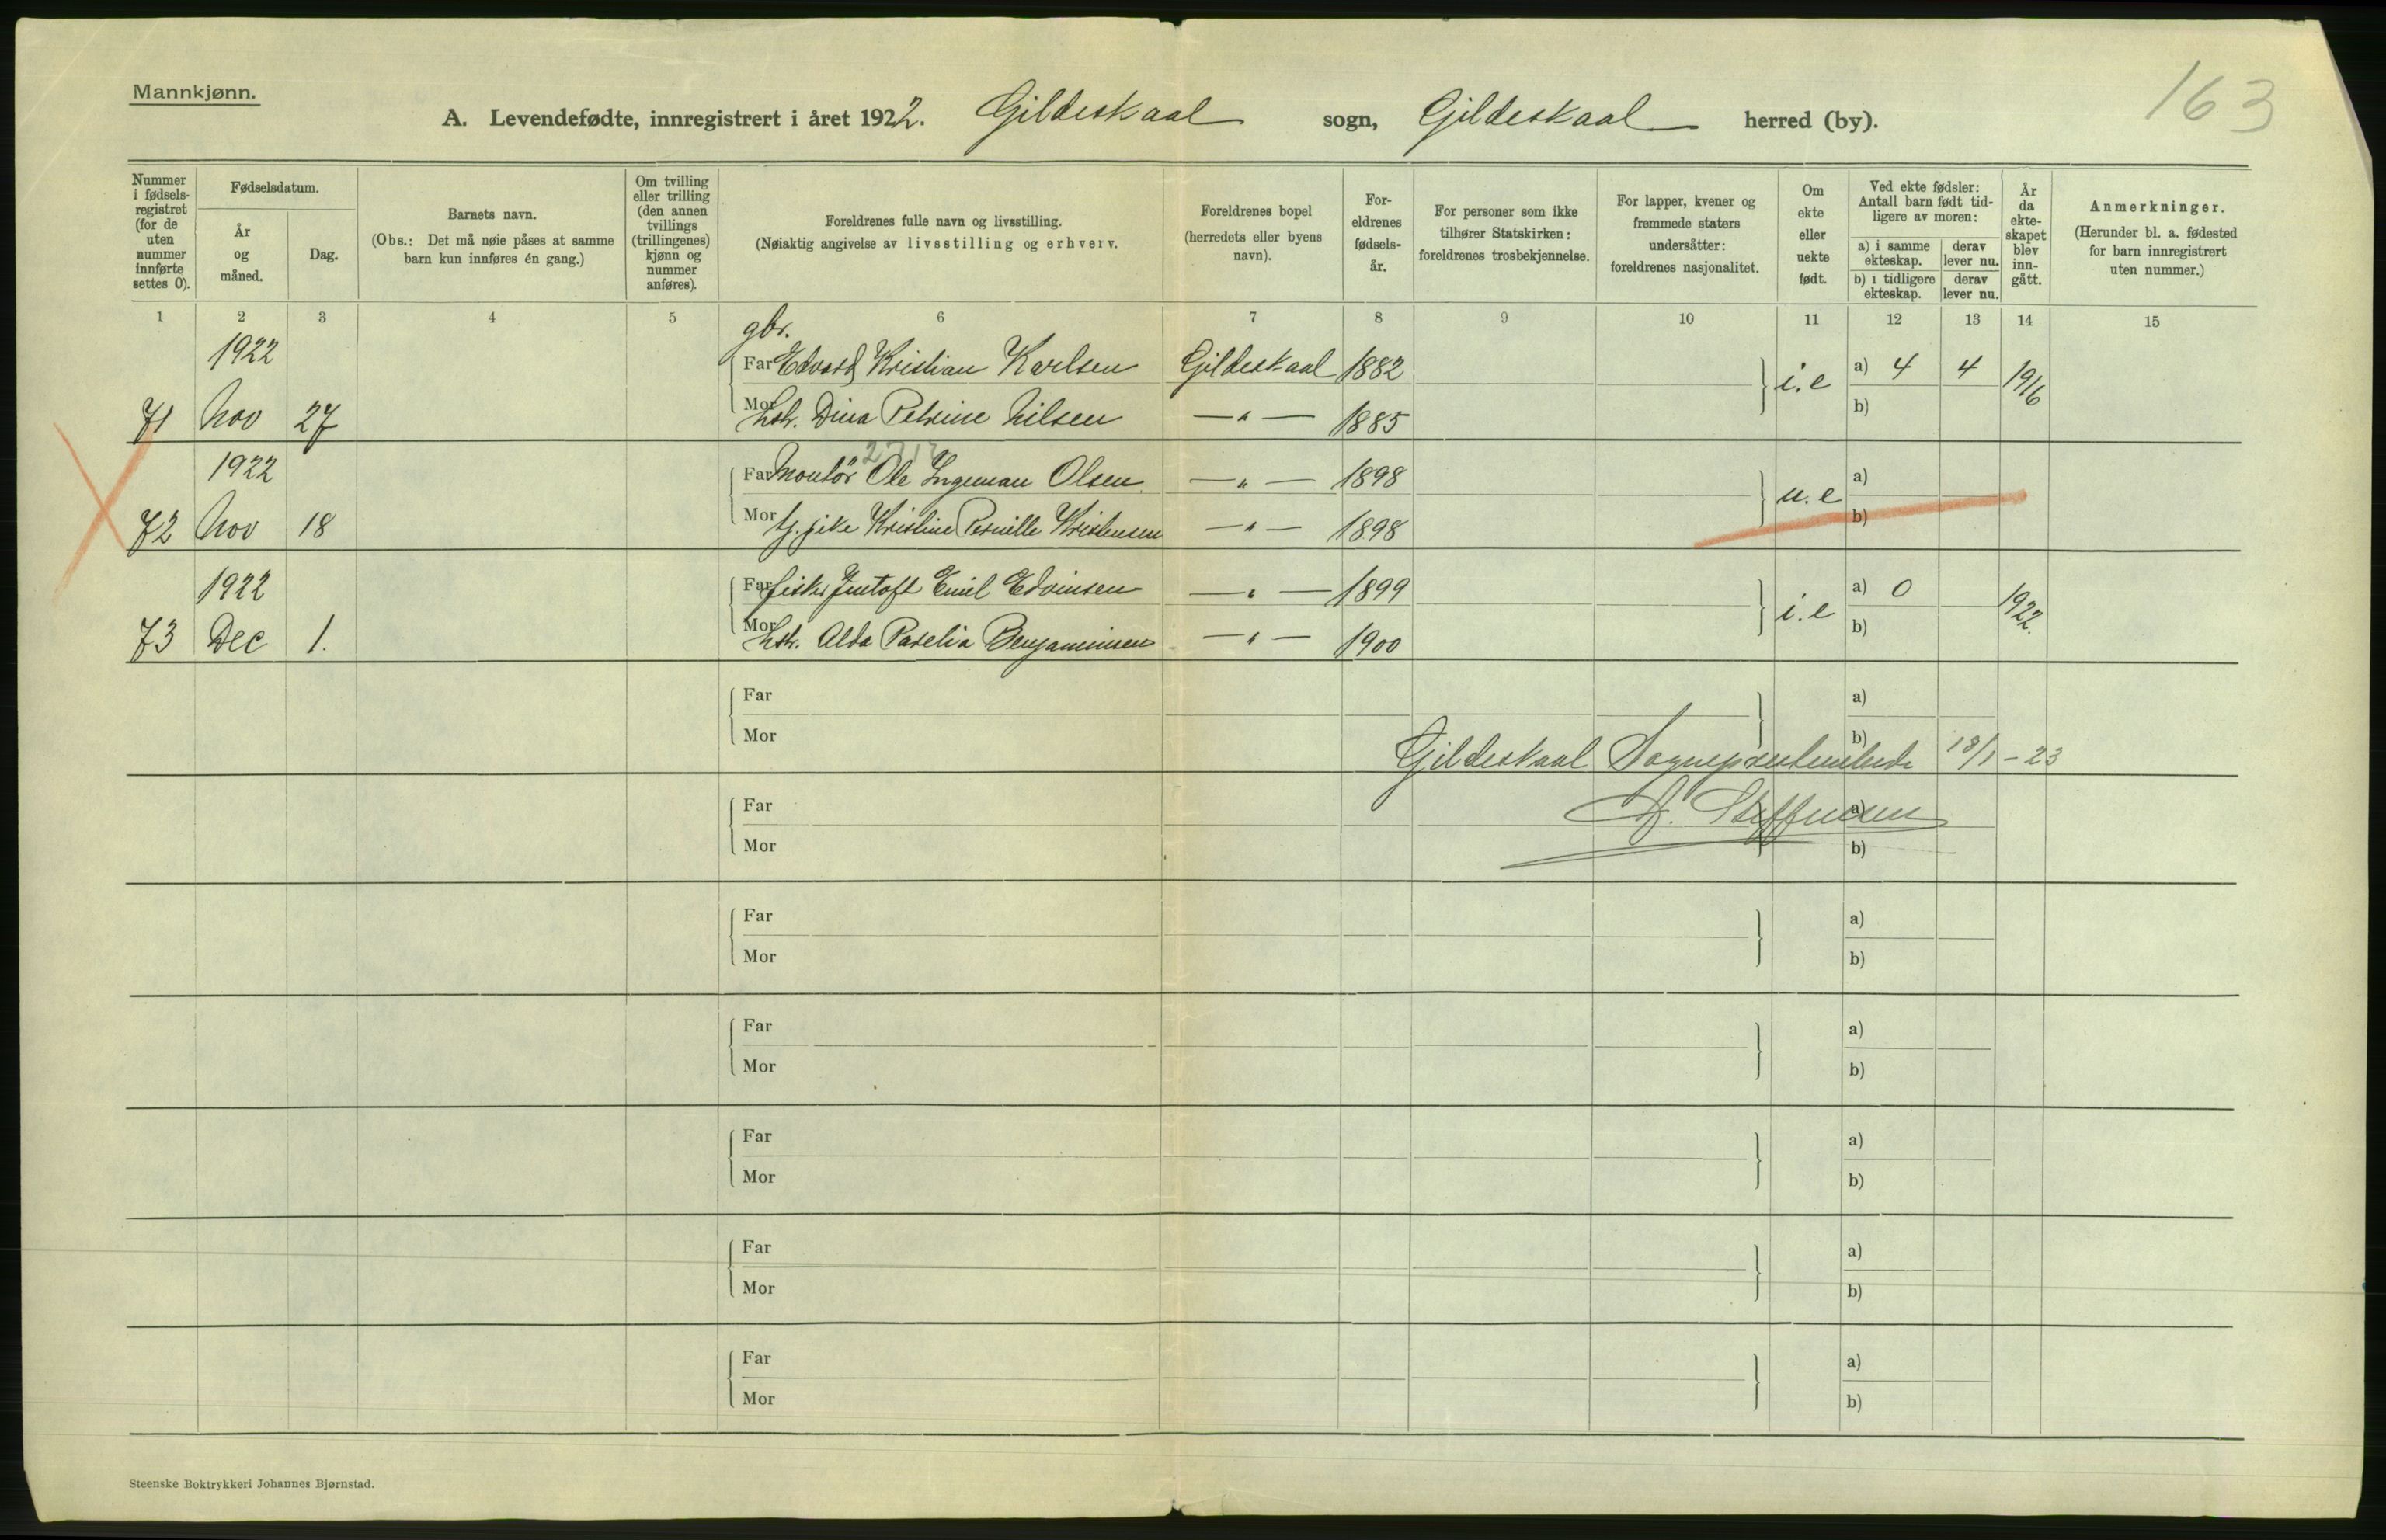 Mannkjønn.
163
A. Levendefødte, innregistrert i året 1922. Gildeskaal sogn, Gildeskaal herred (by).
Nummer i fødsels-registret (for de uten nummer innførte settes 0).
Fødselsdatum.
År og måned.
Dag.
Barnets navn.
(Obs.: Det må nøie påses at samme barn kun innføres én gang.)
Om tvilling eller trilling (den annen tvillings (trillingenes) kjønn og nummer anføres).
Foreldrenes fulle navn og livsstilling.
(Nøiaktig angivelse av livsstilling og erhverv.
Foreldrenes bopel (herredets eller byens navn).
For-eldrenes fødsels-år.
For personer som ikke tilhører Statskirken: foreldrenes trosbekjennelse.
For lapper, kvener og fremmede staters undersåtter: foreldrenes nasjonalitet.
Om ekte eller uekte født.
Ved ekte fødsler: Antall barn født tid-ligere av moren:
a) i samme ekteskap.
derav lever nu.
b) i tidligere ekteskap.
derav lever nu.
År da ekte-skapet blev inn-gått.
Anmerkninger.
(Herunder bl. a. fødested for barn innregistrert uten nummer.)
1 2 3 4 5 6 7 8 9 10 11 12 13 14 15
gbr.
1922
Far Edvard Kristian Karlsen Gildeskaal 1882 i.e a) 4 4 1916
71 Nov 27 Mor hstr. Dina Petrine Nilsen — " — 1885 b)
1922
Far Montör Ole Ingeman Olsen — " — 1898 u.e a)
72 Nov 18 Mor tj. pike Kristine Pernille Kristensen — " — 1898 b)
1922
Far fisker Emil Edvinsen — " — 1899 i.e a) 0 1922.
73 Dec 1. Mor hstr. Alda Benjaminsen — " — 1900 b)
Far a)
Mor b)
Gildeskaal Sogneprestembede 18/1 - 23
Far a)
A. Steffensen
Mor b)
Far a)
Mor b)
Far a)
Mor b)
Far a)
Mor b)
Far a)
Mor b)
Far a)
Mor b)
Steenske Boktrykkeri Johannes Bjørnstad.